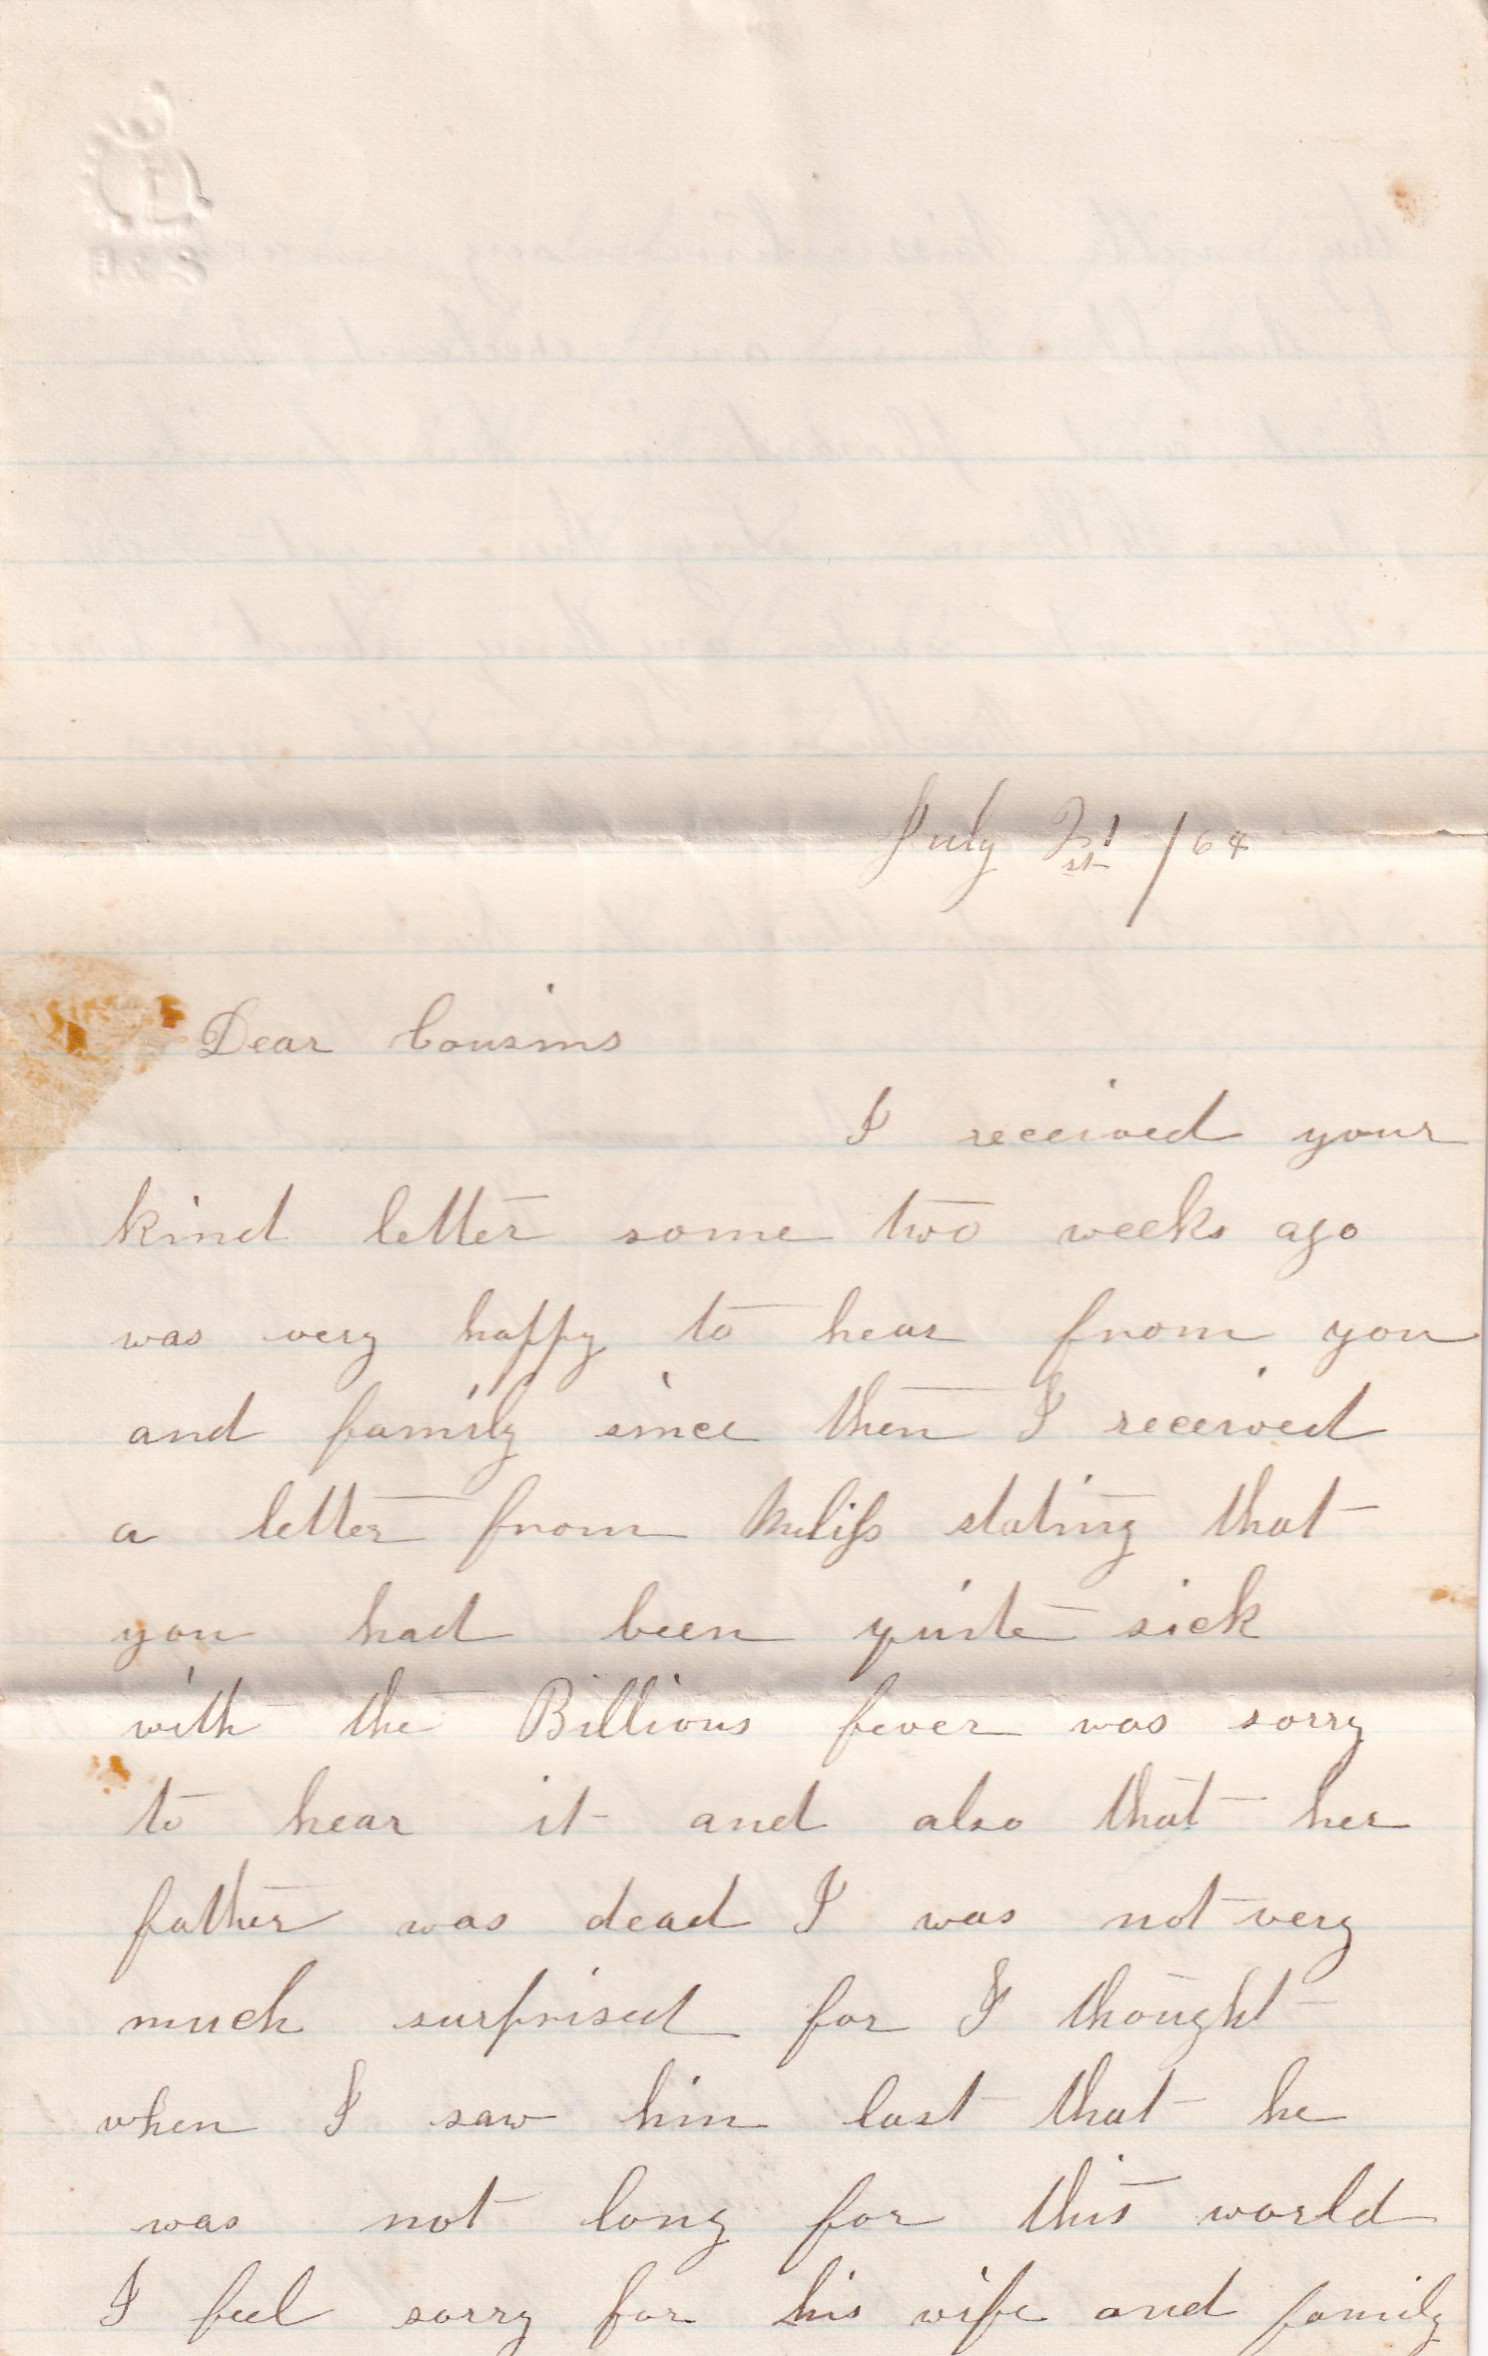 July 21st /64
Dear Cousins
I received your
kind letter some two weeks ago
was very happy to hear from you
and family since then I received
a letter from Meliss stating that
you had been quite sick
with the Billious fever was sorry
to hear it and also that her
father was dead I was not very
much surprised for I thought
when I saw him last that he
was not long for this world
I feel sorry for his wife and family